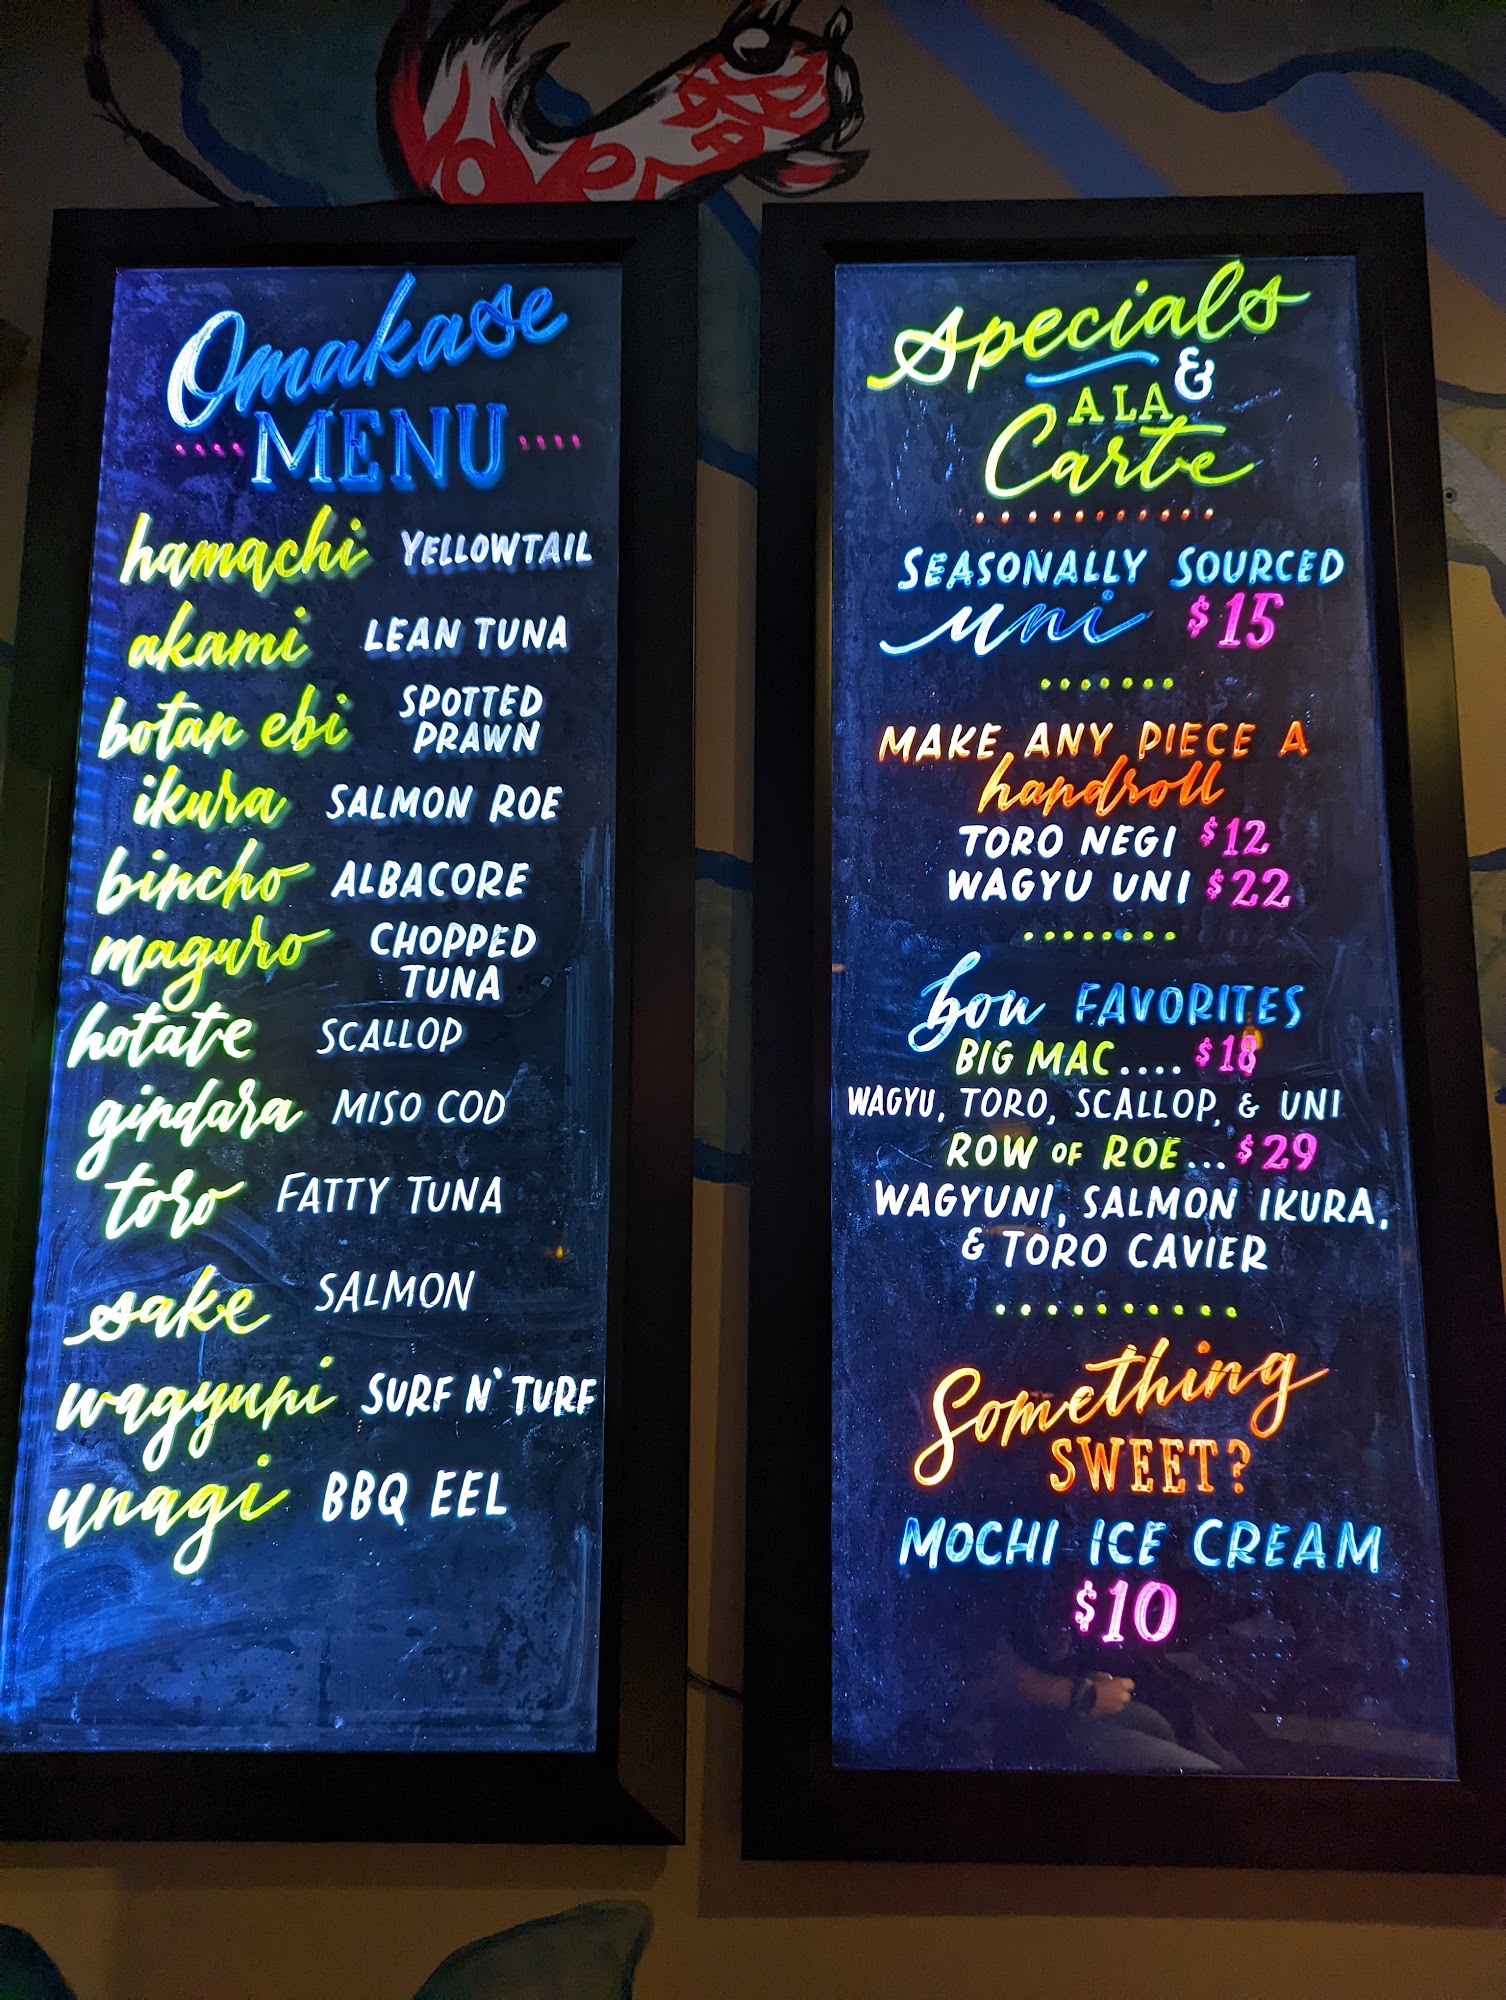 Omakase
MENU
hamachi YELLOWTAIL
akami LEAN TUNA
botan ebi SPOTTED PRAWN
ikura SALMON ROE
bincho ALBACORE
maguro CHOPPED TUNA
hotate SCALLOP
gindara MISO COD
toro FATTY TUNA
sake SALMON
wagyuni SURF N' TURF
unagi BBQ EEL
Specials
&
A LA
Carte
SEASONALLY SOURCED
uni $15
MAKE ANY PIECE A
handroll
TORO NEGI $12
WAGYU UNI $22
bou FAVORITES
BIG MAC.... $18
WAGYU, TORO, SCALLOP, & UNI
ROW OF ROE... $29
WAGYUNI, SALMON IKURA,
& TORO CAVIER
Something
SWEET?
MOCHI ICE CREAM
$10